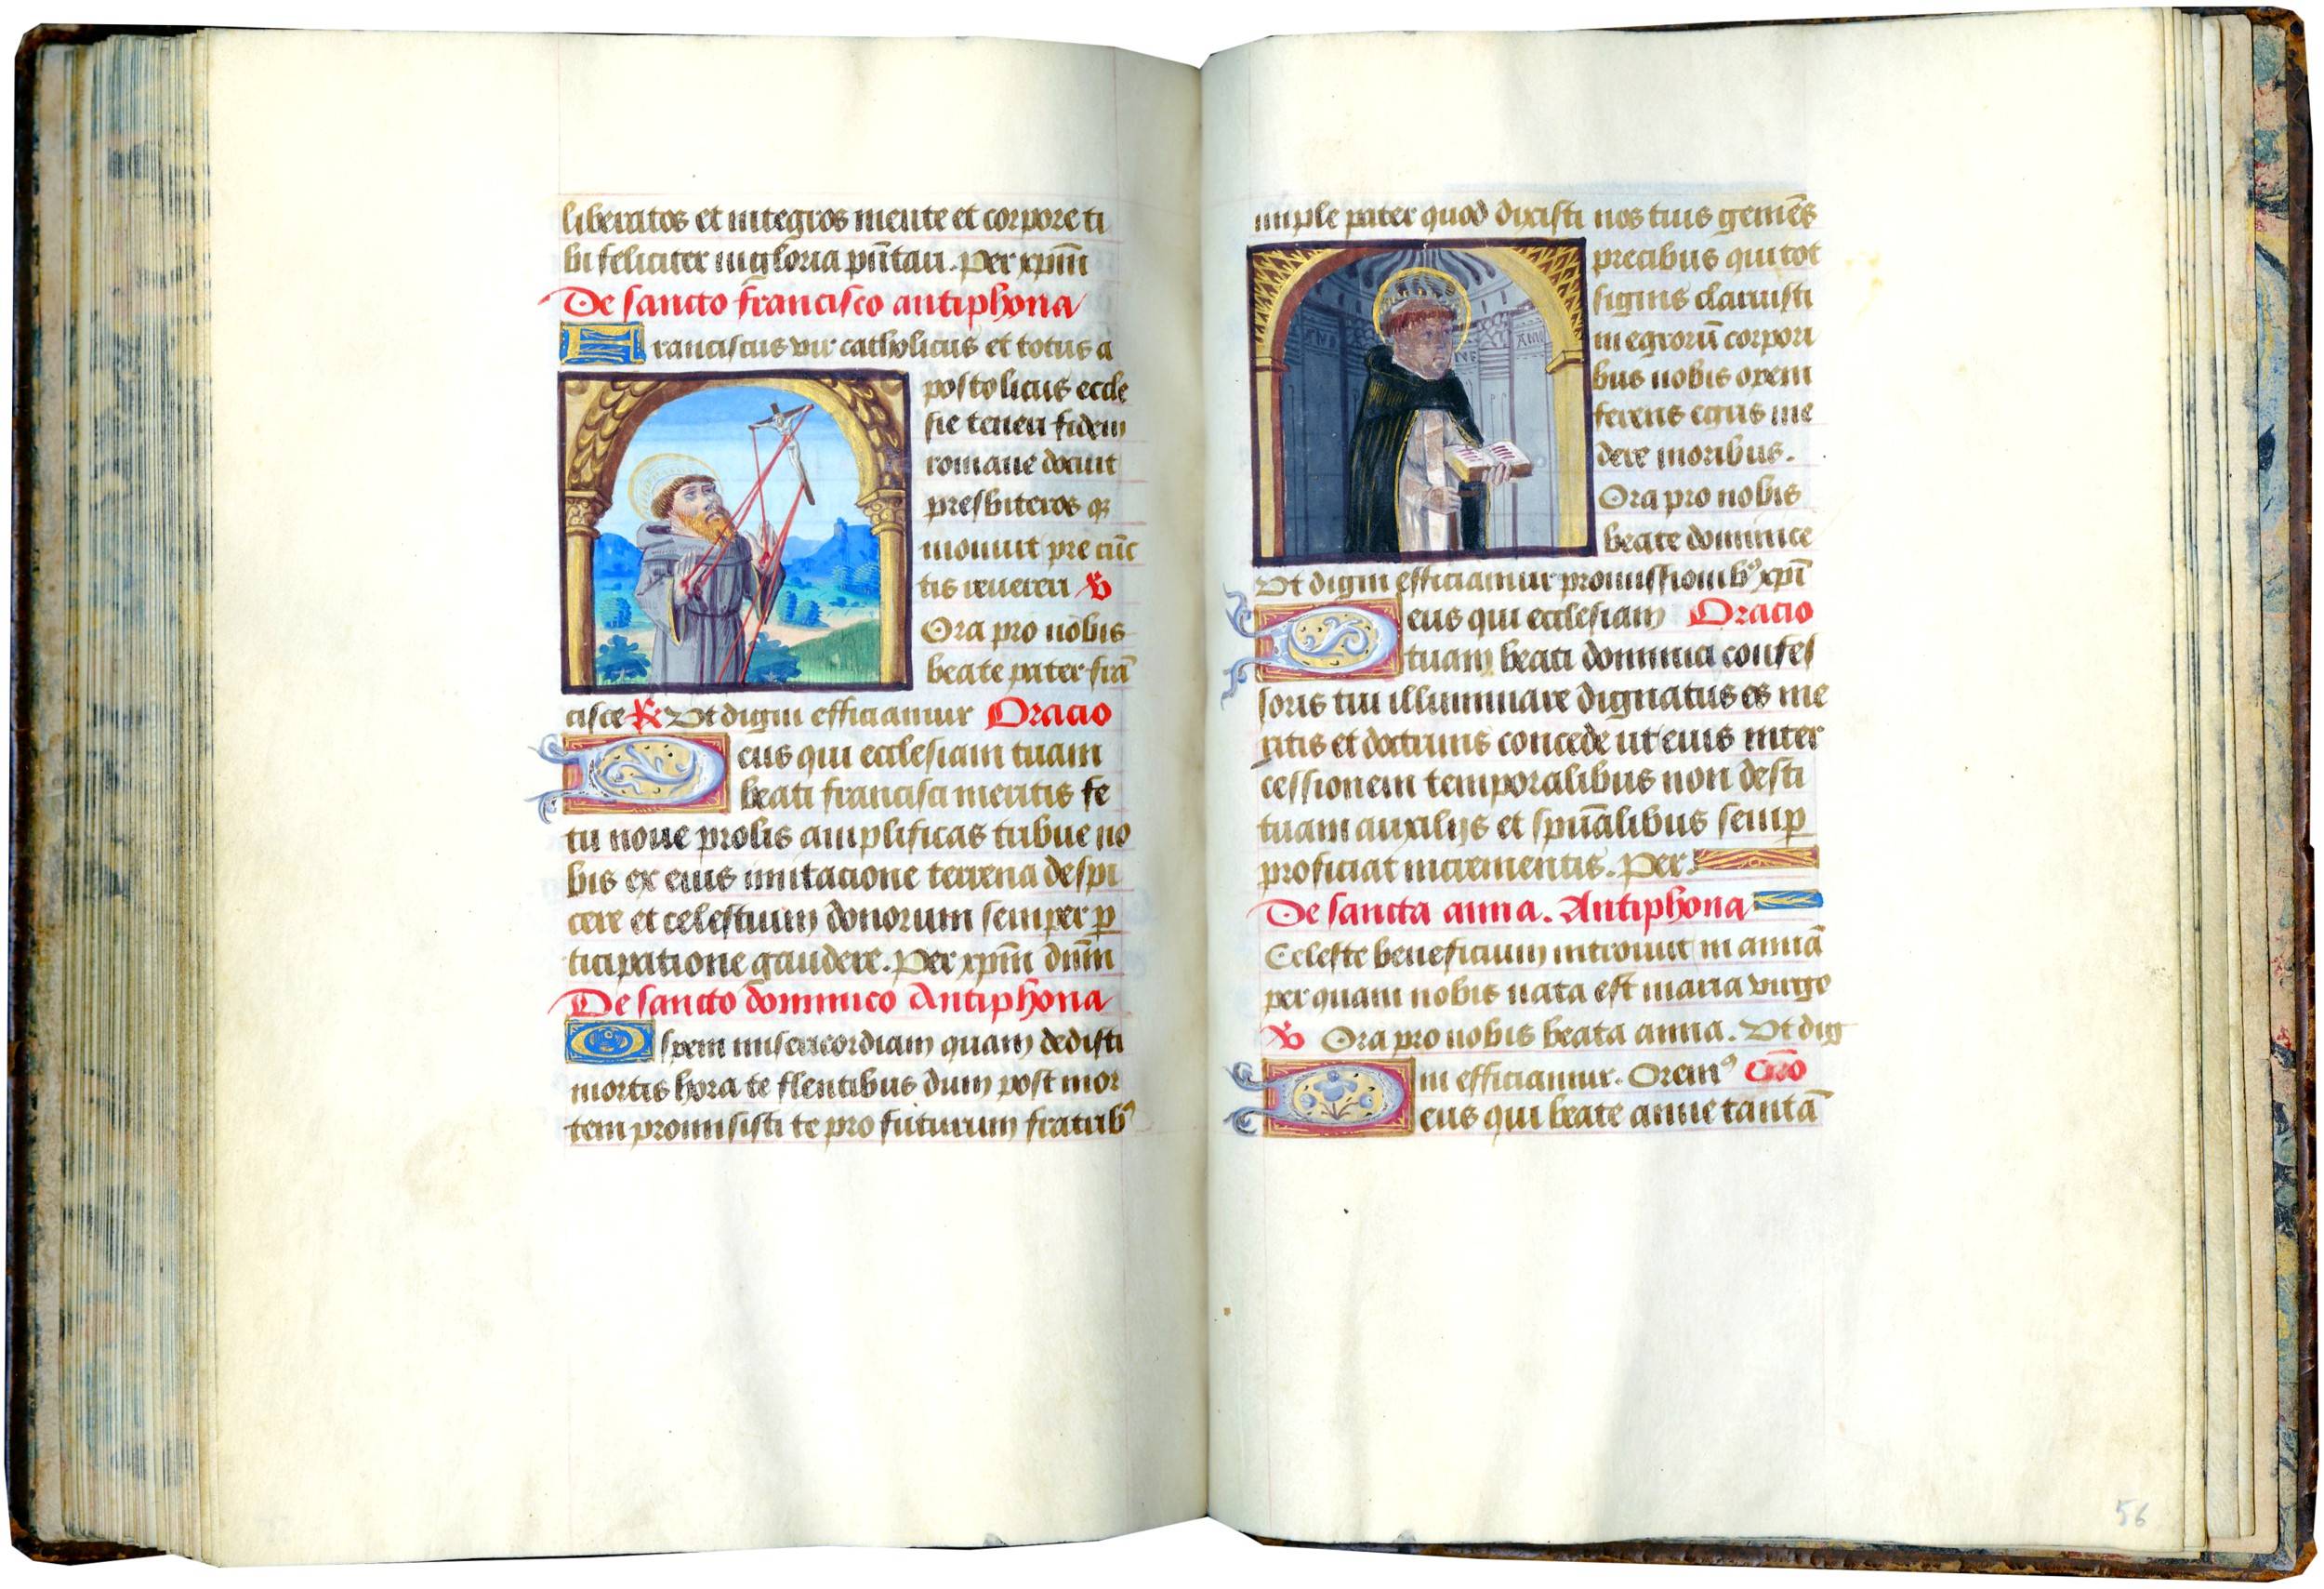 liberatos et integros mente et corpore ti
bi feliciter in gloria pñtari. Per xpm̄
De sancto francisco antiphona
Franciscus vir catholicus et totus a
postolicus eccle
sie teneri fidem
romane docuit
presbiteros qꝫ
monuit pre cūc
tis reuereri ℣
Ora pro nobis
beate pater frā
cisce ℟ Vt digni efficiamur Oracio
Deus qui ecclesiam tuam
beati francisci meritis fe
tu noue prolis amplificas tribue no
bis ex eius imitacione terrena despi
cere et celestium donorum semper ꝑ
ticipatione gaudere. Per xpm̄ dn̄m
De sancto dominico Antiphona
O spem misericordiam quam dedisti
mortis hora te flentibus dum post mor
tem promisisti te pro futurum fratribꝰ
imple pater quod dixisti nos tuis gemēs
precibus qui tot
signis claruisti
in egrorū corpori
bus nobis opem
ferens egris me
dere moribus.
Ora pro nobis
beate dominice
Vt digni efficiamur promissionibꝰ xpī
Deus qui ecclesiam Oracio
tuam beati dominici confes
soris tui illuminare dignatus es me
ritis et doctrinis concede ut eius inter
cessionem temporalibus non desti
tuam auxilijs et spūalibus semꝑ
proficiat incrementis. Per.
De sancta anna. Antiphona
Celeste beneficium introiuit in annā
per quam nobis nata est maria virgo
℣ Ora pro nobis beata anna. Vt dig
ni efficiamur. Oremꝰ Oro᷒
Deus qui beate anne tantā
56